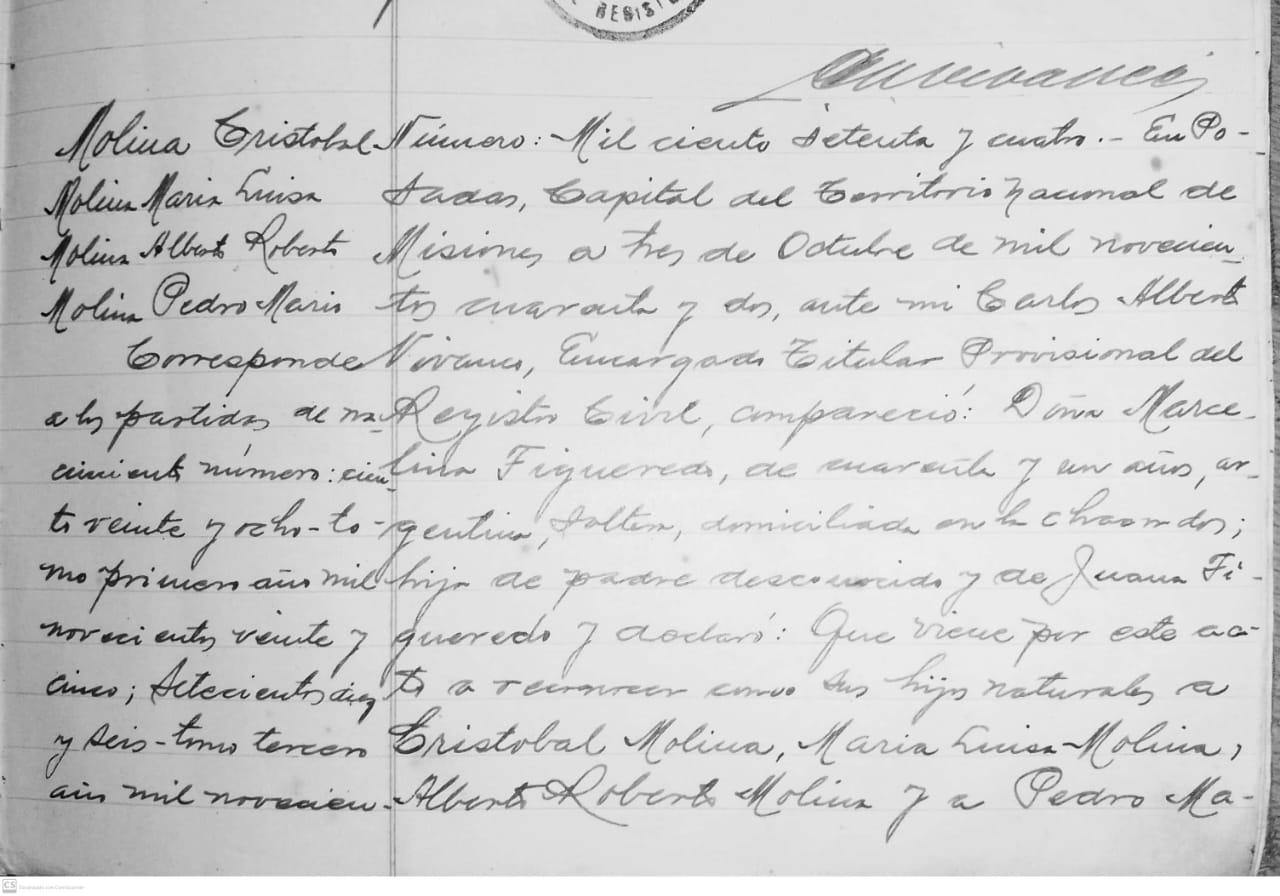 REGIST
Molina Cristobal
Molina Maria Luisa
Molina Alberto Roberto
Molina Pedro Mario
Corresponde
a las partidas de na-
cimiento número: cien-
to veinte y ocho - to-
mo primero año mil
novecientos veinte y
cinco; setecientos diez
y seis - tomo tercero
año mil novecien-
Número: - Mil ciento setenta y cuatro. - En Po-
sadas, Capital del Territorio Nacional de
Misiones a tres de Octubre de mil novecien-
tos cuarenta y dos, ante mi Carlos Alberto
Vivanco, Encargado Titular Provisional del
Registro Civil, compareció: Doña Marce-
lina Figueredo, de cuarenta y un años, ar-
gentina, soltera, domiciliada en la chacra dos;
hija de padre desconocido y de Juana Fi-
gueredo y declaró: Que viene por este ac-
to a reconocer como sus hijos naturales a
Cristobal Molina, Maria Luisa Molina,
Alberto Roberto Molina y a Pedro Ma-
CS Escaneado con CamScanner